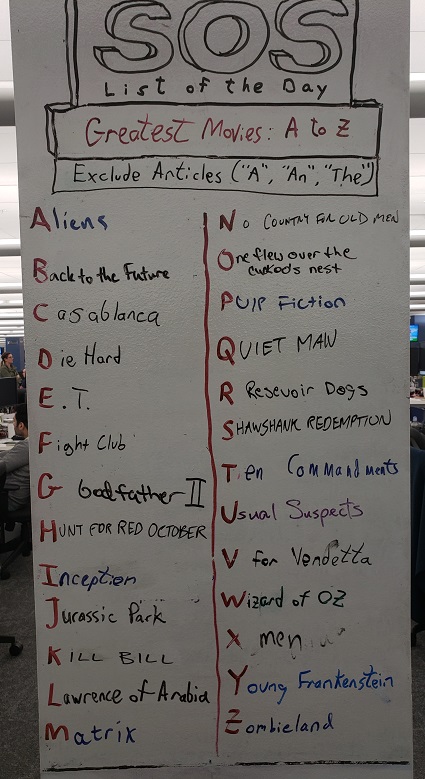 SOS
List of the Day
Greatest Movies: A to Z
Exclude Articles ("A", "An", "The")
Aliens
Back to the Future
Casablanca
Die Hard
E.T.
Fight Club
Godfather II
HUNT FOR RED OCTOBER
Inception
Jurassic Park
KILL BILL
Lawrence of Arabia
Matrix
No COUNTRY FOR OLD MEN
One flew over the
cuckoo's nest
PUlP Fiction
QUIET MAN
Resevoir Dogs
SHAWSHANK REDEMPTION
Ten Commandments
Usual Suspects
V for Vendetta
Wizard of OZ
X men
Young Frankenstein
Zombieland